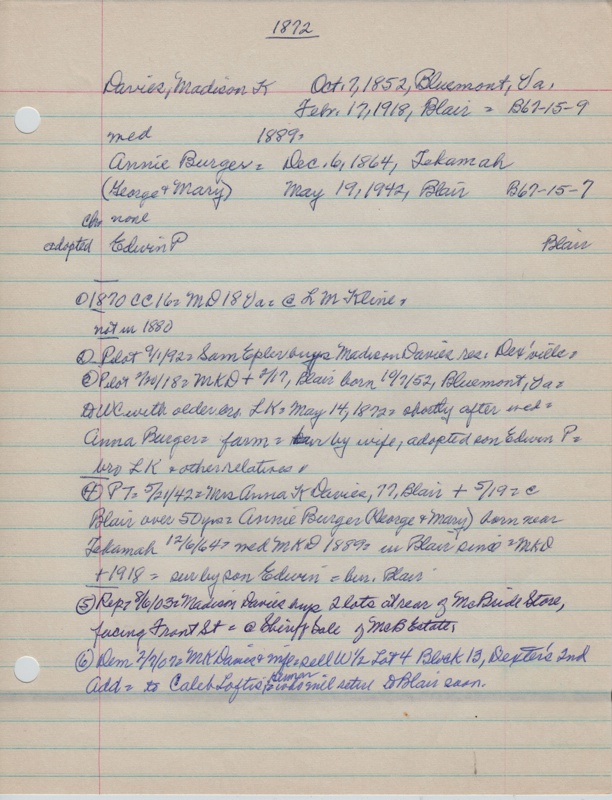 1872
Davies, Madison K Oct. 7, 1852, Bluemont, Va.
Febr. 17, 1918, Blair = B67-15-9
med 1889=
Annie Burger = Dec. 6, 1864, Tekamah
(George & Mary) May 19, 1942, Blair B67-15-7
chn none
adopted Edwin P Blair
① 1870 CC 16= MD 18 Va = @ L M Kline =
not in 1880
② Pilot 9/1/92 = Sam Epler buys Madison Davies res. Dex'ville =
③ Pilot 2/20/18 = MKD + 2/17, Blair born 10/7/52, Bluemont, Va =
to WC with older bro. LK = May 14, 1872 = shortly after med =
Anna Burger = farm = sur by wife, adopted son Edwin P =
bro LK & other relatives =
④ PT = 5/21/42 = Mrs Anna K Davies, 77, Blair + 5/19 = @
Blair over 50 yrs = Annie Burger (George & Mary) born near
Tekamah 12/6/64 = med MKD 1889 = in Blair since = MKD
+ 1918 = sur by son Edwin = bur. Blair
⑤ Rep = 8/6/03 = Madison Davies buys 2 lots at rear of McBride Store,
facing Front St = @ Sheriff Sale of McB Estate,
⑥ Dem 2/7/07 = MK Davies & wife sell W 1/2 Lot 4 Block 13, Dexter's 2nd
Add = to Caleb Loftis who will retire to Blair soon.